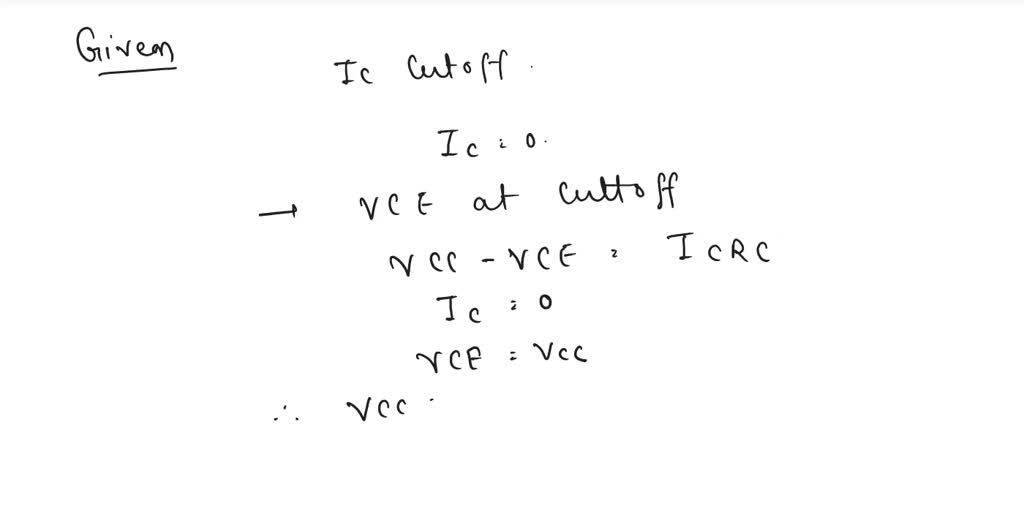 Given
Ic Cutoff.
Ic = 0.
→ VCE at Cuttoff
VCC - VCE = ICRC
Ic = 0
VCE = VCC
∴ VCC